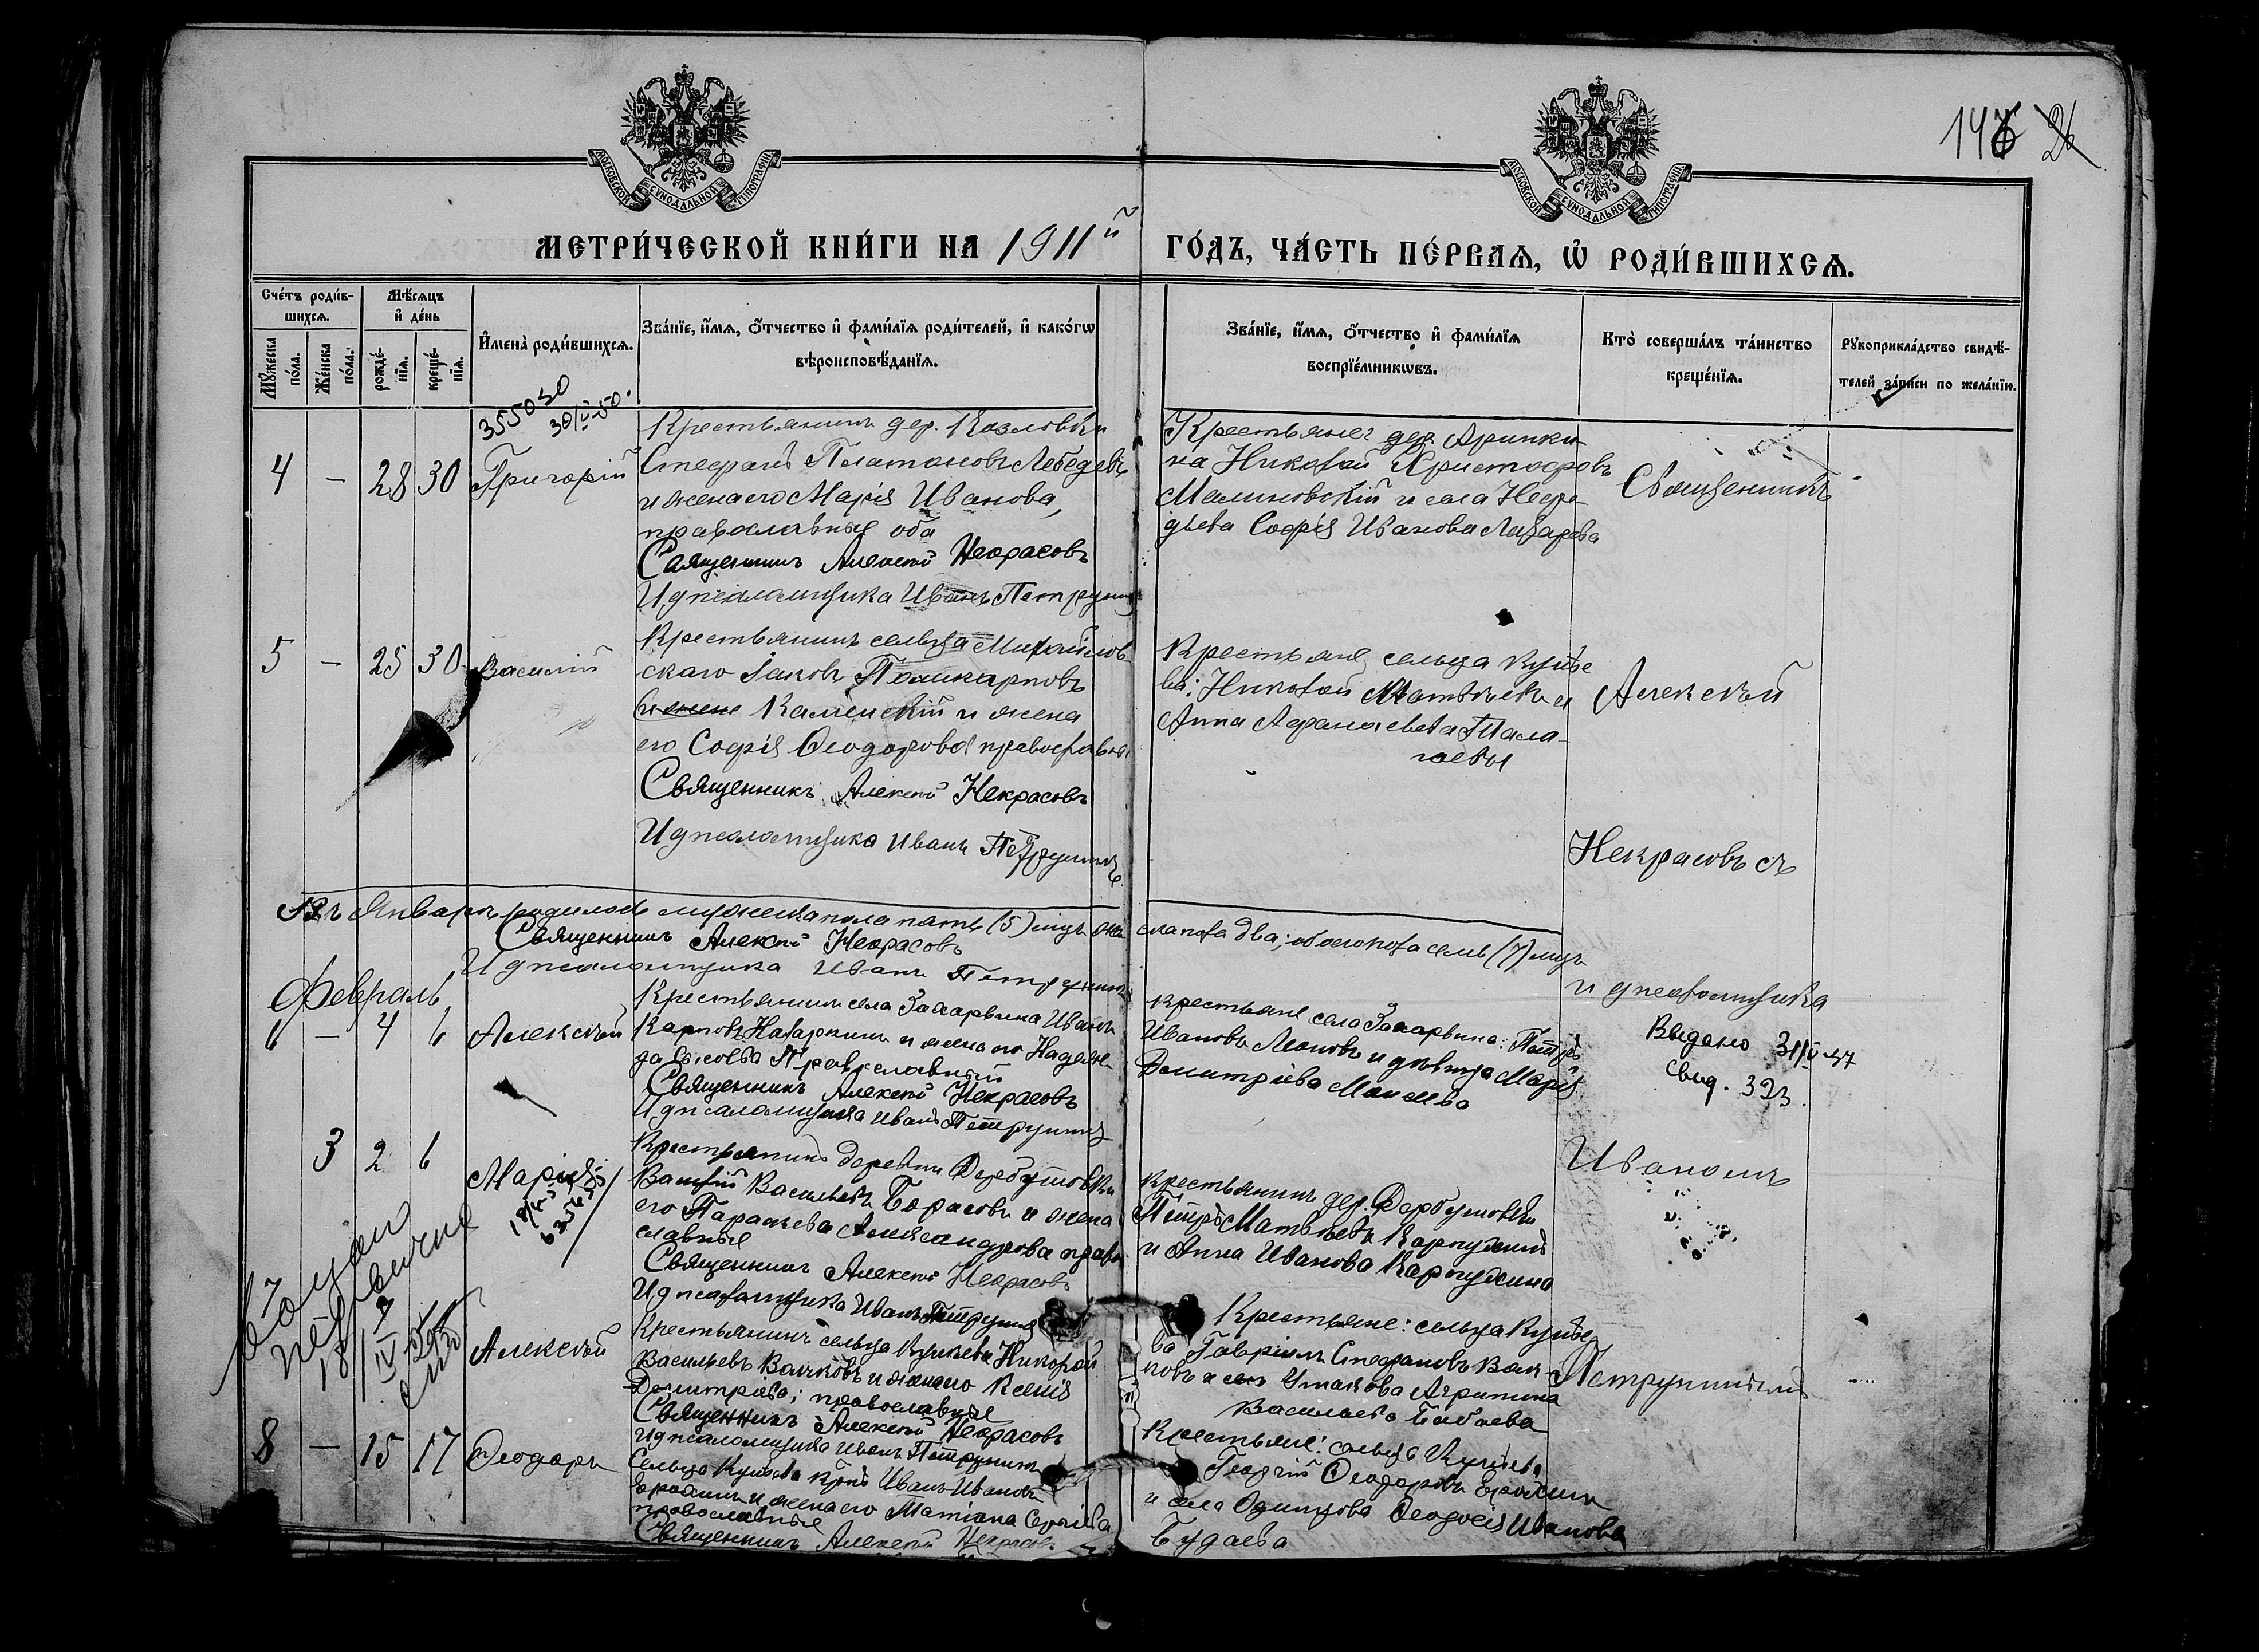 147 26
МОСКОВСКОЙ СѴНОДАЛЬНОЙ ТИПОГРАФІИ
МОСКОВСКОЙ СѴНОДАЛЬНОЙ ТИПОГРАФІИ
МЕТРИ́ЧЕСКОЙ КНИ́ГИ НА 1911й ГО́ДЪ, ЧА́СТЬ ПЕ́РВАѦ, Ѡ҆ РОДИ́ВШИХСѦ.
Сче́тъ роди́в-
шихсѧ.
Мѣ́сѧцъ
и҆ де́нь
Мꙋ́жеска по́ла.
Же́нска по́ла.
рожде́-
нїѧ.
креще́-
нїѧ.
И҆мена̀ роди́вшихсѧ.
Зва́нїе, и҆́мѧ, ѻ҆́тчество и҆ фами́лїѧ роди́телей, и҆ како́гѡ
вѣроисповѣ́данїѧ.
Зва́нїе, и҆́мѧ, ѻ҆́тчество и҆ фами́лїѧ
воспрїе́мникѡвъ.
Кто̀ соверша́лъ та́инство
креще́нїѧ.
Рꙋкоприкла́дство свидѣ́-
телей за́писи по жела́нїю.
355030
4 - 28 30 Григорій
Крестьянинъ дер. Козловки
Стефанъ Платоновъ Лебедевъ
и жена его Марія Иванова,
православные оба
Священникъ Алексѣй Некрасовъ
И д псаломщика Иванъ Петрунинъ
Крестьяне: дер. Аринки-
на Николай Христофоровъ
Малиновскій и села Нефе-
дьева Софія Иванова Лазарева
Священникъ
5 - 25 30 Василій
Крестьянинъ сельца Михайлов-
скаго Іаковъ Поликарповъ
Каменскій и жена
его Софія Ѳеодорова православн
Священникъ Алексѣй Некрасовъ
И д псаломщика Иванъ Петрунинъ
Крестьяне сельца Купѣе
ва: Николай Матвѣевъ и
Анна Афанасьева
гаевы
Алексѣй
Некрасовъ съ
Въ Январѣ родилось мужеска пола пять (5) лицъ жен
ска пола два; обоего пола семь (7) лицъ
Священникъ Алексѣй Некрасовъ
И д псаломщика Иванъ Петрунинъ
и д псаломщика
Февраль
6 - 4 6 Алексѣй
Крестьянинъ села Захарьина Иванъ
Карповъ и жена его Надеж-
да православные
Священникъ Алексѣй Некрасовъ
И д псаломщика Иванъ Петрунинъ
Крестьяне села Захарьина: Петръ
Ивановъ и дѣвица Марія
Димитріева
Выдано
свид. 323.
3 2 6 Марія
Крестьянинъ деревни Дербушовки
Василій Васильевъ Борисовъ и жена
его Параскева Александрова право
славные
Священникъ Алексѣй Некрасовъ
И д псаломщика Иванъ Петрунинъ
Крестьянинъ дер. Дербушовки
Петръ Матвѣевъ Карпухинъ
и Анна Иванова Карпухина
Иваномъ
635455
Алексѣй
Крестьянинъ сельца Купѣева Николай
Васильевъ Волковъ и жена его Ксенія
Димитріева; православные
Священникъ Алексѣй Некрасовъ
И д псаломщика Иванъ Петрунинъ
Крестьяне: сельца Купѣе
ва Гавріилъ Стефановъ Вол-
ковъ и Ушакова Агрипина
Васильева Бабаева
Петрунинымъ
8 - 15 17 Ѳеодоръ
Сельца Купѣева Иванъ Ивановъ
и жена его Татіана Сергѣева
православные
Священникъ Алексѣй Некрасовъ
Крестьяне: сельца Купѣева
Георгій Ѳеодоровъ
и села Одинцова Ѳеодосія Иванова
Будаева